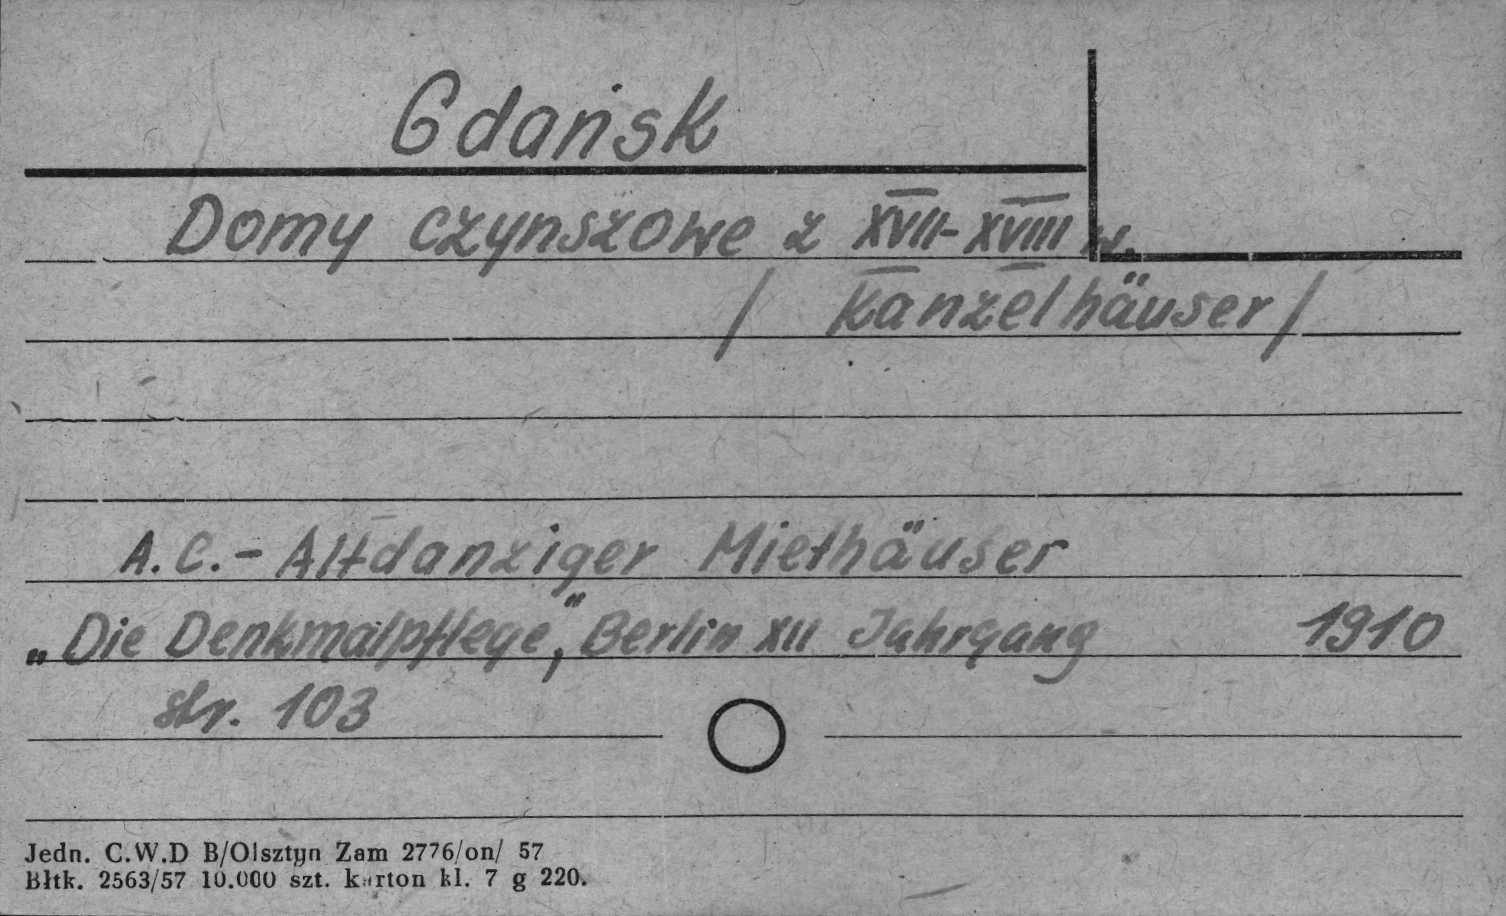 Gdańsk
Domy czynszowe z XVII-XVIII w.
/ Kanzelhäuser/
A.C.- Altdanziger Miethäuser
„Die Denkmalpflege", Berlin XII Jahrgang 1910
str. 103
Jedn. C.W.D B/Olsztyn Zam 2776/on/ 57
Błtk. 2563/57 10.000 szt. karton kl. 7 g 220.